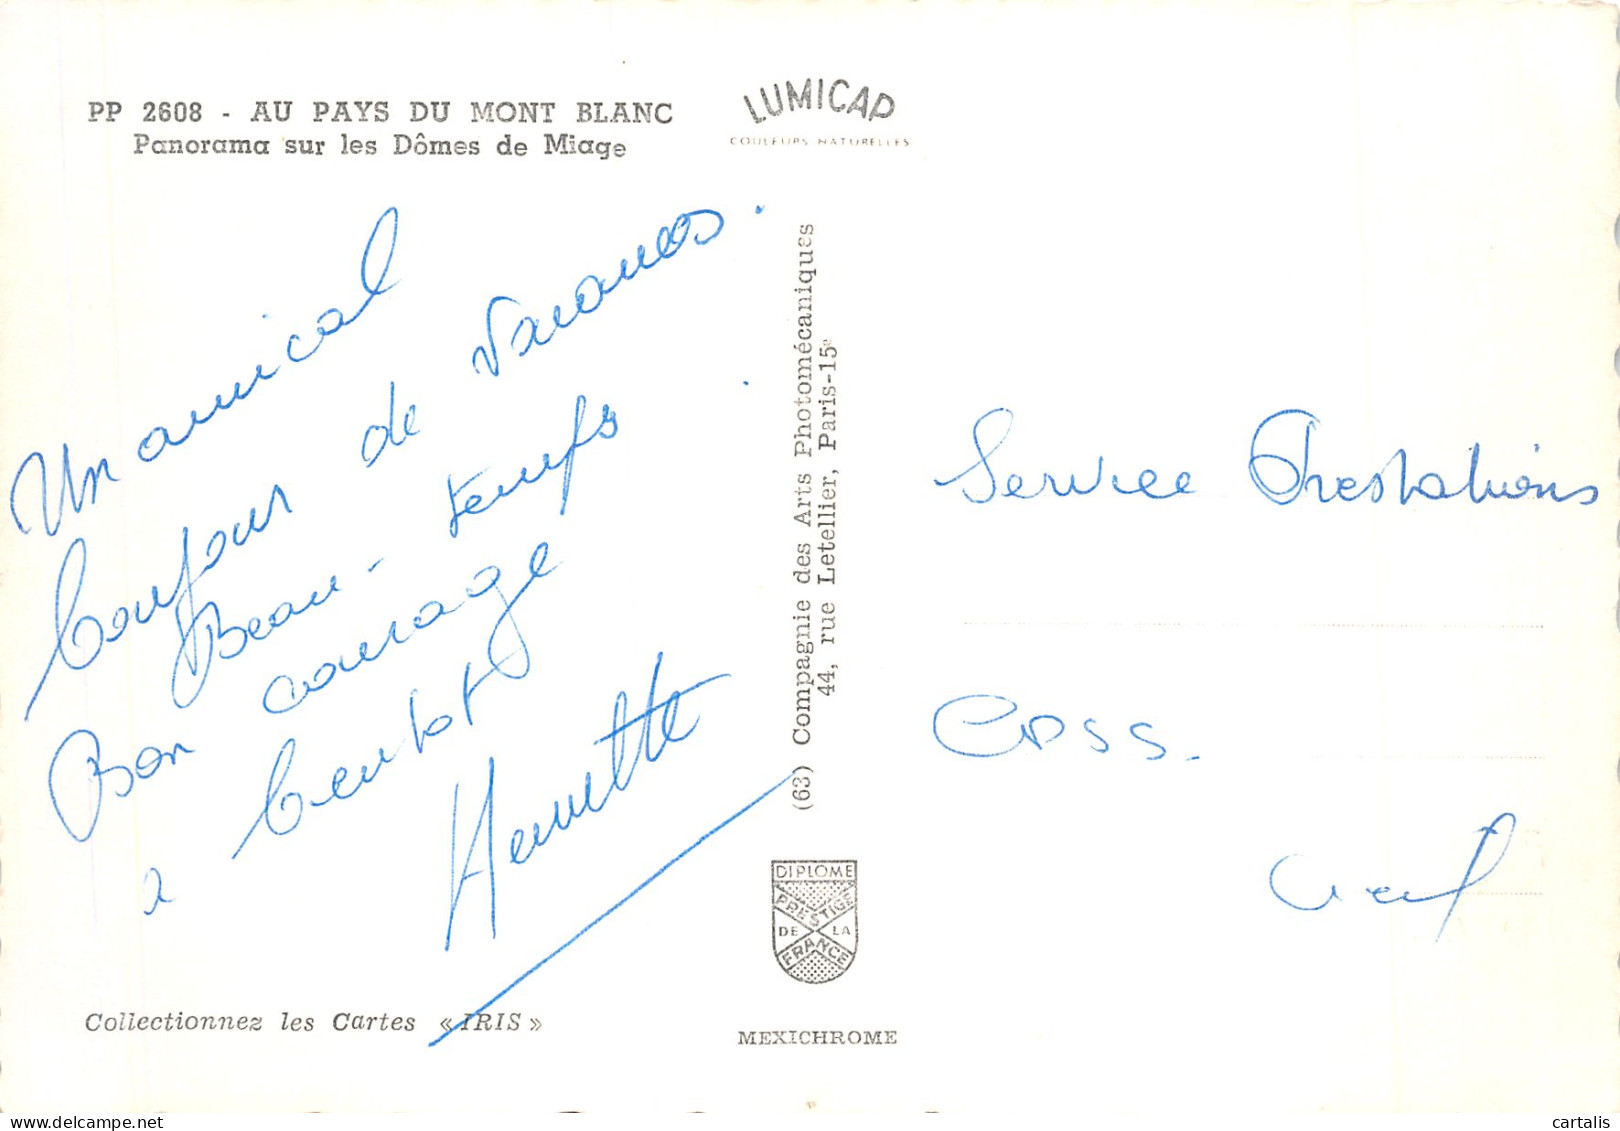 PP 2608 - AU PAYS DU MONT BLANC
Panorama sur les Dômes de Miage
LUMICAP
COULEURS NATURELLES
Un amical
bonjour de Vacances.
Beau-temps.
Bon courage
a bientot
Henriette
(63) Compagnie des Arts Photomécaniques
44, rue Letellier, Paris-15e
Service Prestations
CPSS.
DIPLOME
PRESTIGE
DE LA
FRANCE
Collectionnez les Cartes « IRIS »
MEXICHROME
cartalis | delcampe.net